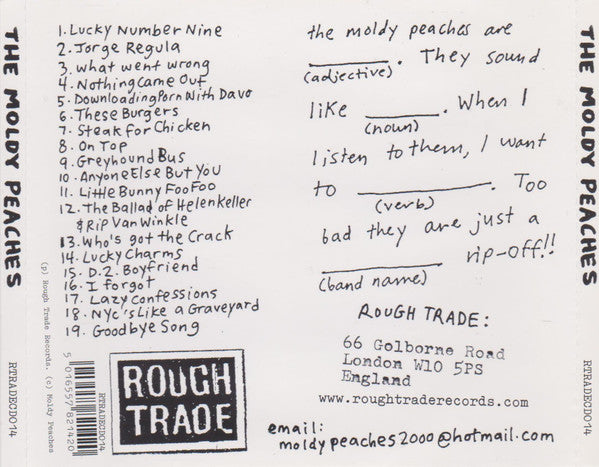 THE MOLDY PEACHES
RTRADECD014
1. Lucky Number Nine
2. Jorge Regula
3. what went wrong
4. Nothing Came Out
5. Downloading Porn With Davo
6. These Burgers
7. Steak for Chicken
8. On Top
9. Greyhound Bus
10. Anyone Else But You
11. Little Bunny Foo Foo
12. The Ballad of Helen Keller
& Rip Van Winkle
13. Who's got the Crack
14. Lucky Charms
15. D.2. Boyfriend
16. I forgot
17. Lazy Confessions
18. NYC's Like a Graveyard
19. Goodbye Song
(p) Rough Trade Records. (c) Moldy Peaches
5 016557 821420
RTRADECD014
ROUGH
TRADE
the moldy peaches are
________. They sound
(adjective)
like ________. When I
(noun)
listen to them, I want
to ____________. Too
(verb)
bad they are just a
____________ rip-off!!
(band name)
ROUGH TRADE:
66 Golborne Road
London W10 5PS
England
www.roughtraderecords.com
email:
moldypeaches2000@hotmail.com
THE MOLDY PEACHES
RTRADECD014